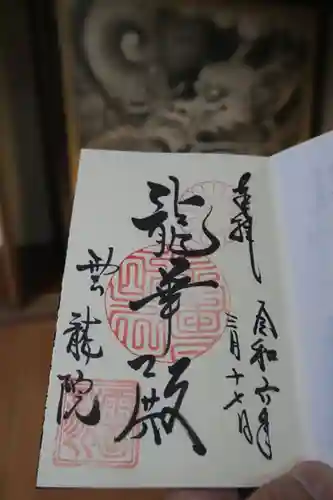 奉拝
令和六年
三月十七日
龍華殿
雲龍院